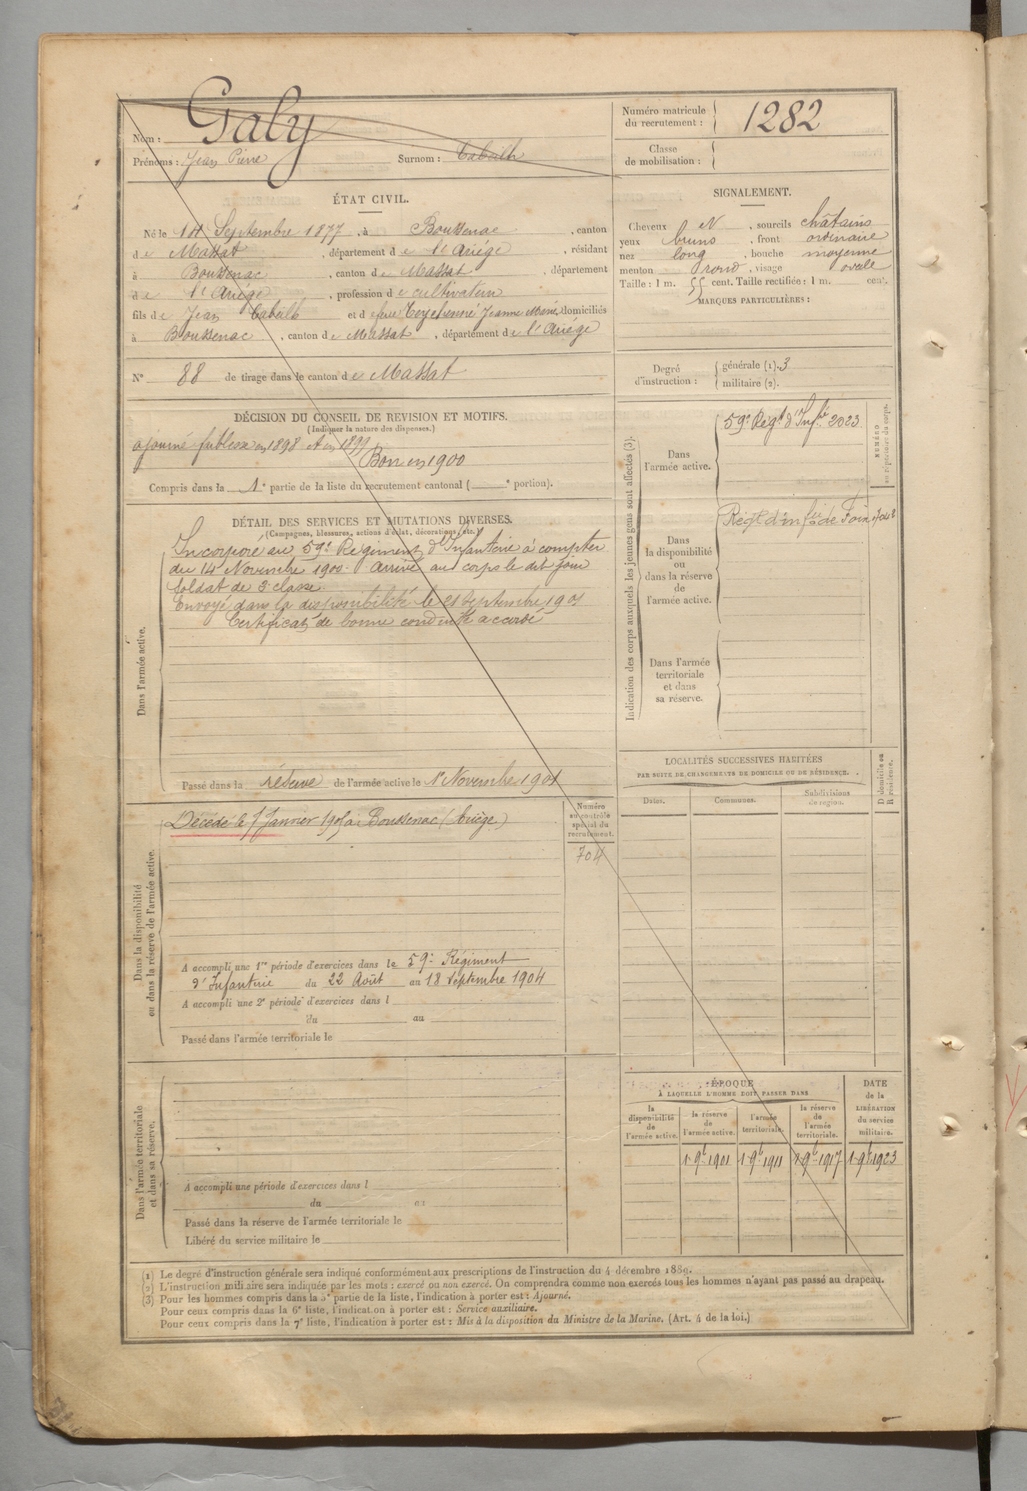 Nom : Galy
Prénoms : Jean Pierre Surnom : Cabeilh
Numéro matricule du recrutement : 1282
Classe de mobilisation :
ÉTAT CIVIL.
Né le 14 Septembre 1877, à Boussenac, canton
de Massat, département de l'Ariége, résidant
à Boussenac, canton de Massat, département
de l'Ariége, profession de cultivateur
fils de Jean Cabeilh et de feue Teychenné Jeanne Marie, domiciliés
à Boussenac, canton de Massat, département de l'Ariége
N° 88 de tirage dans le canton de Massat
SIGNALEMENT.
Cheveux N, sourcils châtains
yeux bruns, front ordinaire
nez long, bouche moyenne
menton rond, visage ovale
Taille : 1 m. 55 cent. Taille rectifiée : 1 m. cent.
MARQUES PARTICULIÈRES :
Degré d'instruction : générale (1). 3
militaire (2).
DÉCISION DU CONSEIL DE REVISION ET MOTIFS.
(Indiquer la nature des dispenses.)
ajourné faiblesse en 1898 et en 1899
Bon en 1900
Compris dans la 1e partie de la liste du recrutement cantonal ( e portion).
DÉTAIL DES SERVICES ET MUTATIONS DIVERSES.
(Campagnes, blessures, actions d'éclat, décorations, etc.)
Dans l'armée active.
Incorporé au 59e Régiment d'Infanterie à compter
du 14 Novembre 1900. Arrivé au corps le dit jour
Soldat de 2e classe
Envoyé dans la disponibilité le 21 Septembre 1901
Certificat de bonne conduite accordé
Passé dans la réserve de l'armée active le 1er Novembre 1901
Indication des corps auxquels les jeunes gens sont affectés (3).
NUMÉRO au répertoire du corps.
Dans l'armée active.
59e Régt d'Infrie 2023
Dans la disponibilité ou dans la réserve de l'armée active.
Régt d'infrie de Foix
Dans l'armée territoriale et dans sa réserve.
LOCALITÉS SUCCESSIVES HABITÉES
PAR SUITE DE CHANGEMENTS DE DOMICILE OU DE RÉSIDENCE.
Dates. Communes. Subdivisions de région. D domicile ou R résidence.
Dans la disponibilité ou dans la réserve de l'armée active.
Numéro au contrôle spécial du recrutement.
704
Décédé le 7 Janvier 1905 à Boussenac (Ariège)
A accompli une 1re période d'exercices dans le 59e Régiment
d'Infanterie du 22 Août au 18 Septembre 1904
A accompli une 2e période d'exercices dans l
du au
Passé dans l'armée territoriale le
Dans l'armée territoriale et dans sa réserve.
A accompli une période d'exercices dans l
du au
Passé dans la réserve de l'armée territoriale le
Libéré du service militaire le
ÉPOQUE
À LAQUELLE L'HOMME DOIT PASSER DANS
DATE de la LIBÉRATION du service militaire.
la disponibilité de l'armée active. la réserve de l'armée active. l'armée territoriale. la réserve de l'armée territoriale.
1 9bre 1901 1 9bre 1911 1 9bre 1917 1 9bre 1923
(1) Le degré d'instruction générale sera indiqué conformément aux prescriptions de l'instruction du 4 décembre 1889.
(2) L'instruction militaire sera indiquée par les mots : exercé ou non exercé. On comprendra comme non exercés tous les hommes n'ayant pas passé au drapeau.
(3) Pour les hommes compris dans la 5e partie de la liste, l'indication à porter est : Ajourné.
Pour ceux compris dans la 6e liste, l'indication à porter est : Service auxiliaire.
Pour ceux compris dans la 7e liste, l'indication à porter est : Mis à la disposition du Ministre de la Marine. (Art. 4 de la loi.)